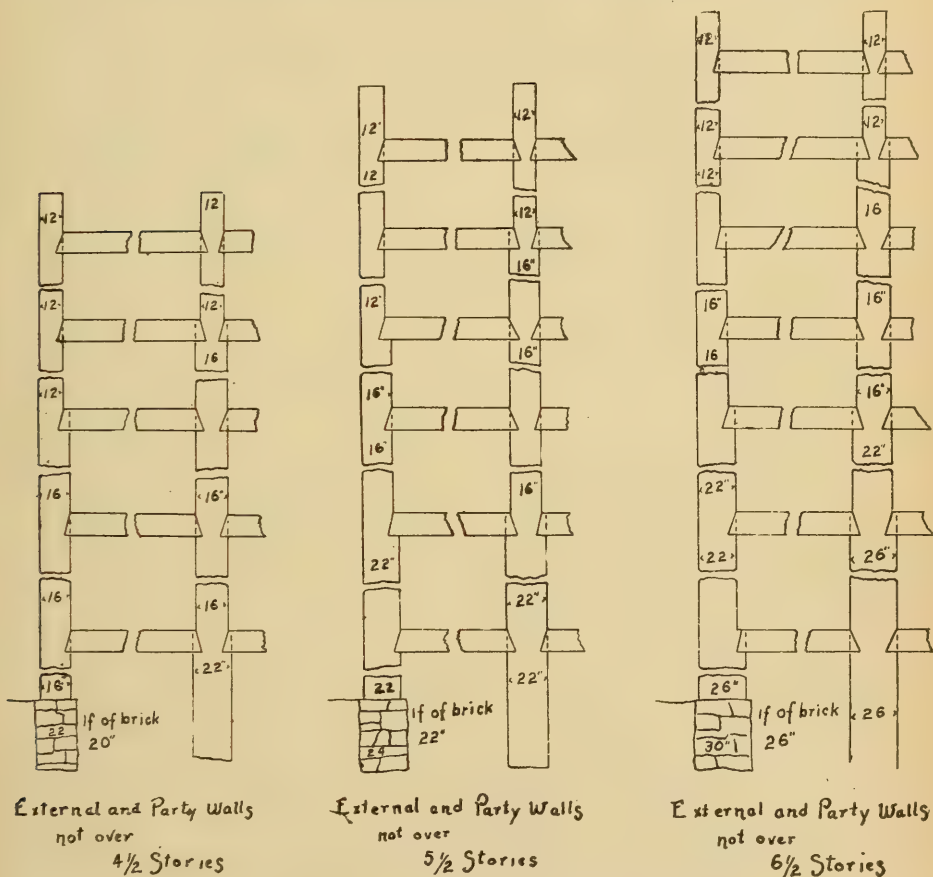 12
12
12
12
16
12
16
16"
16
16
22"
16"
22
If of brick
20"
External and Party Walls
not over
4½ Stories
12"
12"
12
12"
16"
12"
16"
16"
16"
16"
22"
22"
22"
22
24
If of brick
22"
External and Party Walls
not over
5½ Stories
12"
12"
12"
12"
12"
16
16"
16"
16
16"
22"
22"
22
26"
26"
26
30"
If of brick
26"
External and Party Walls
not over
6½ Stories